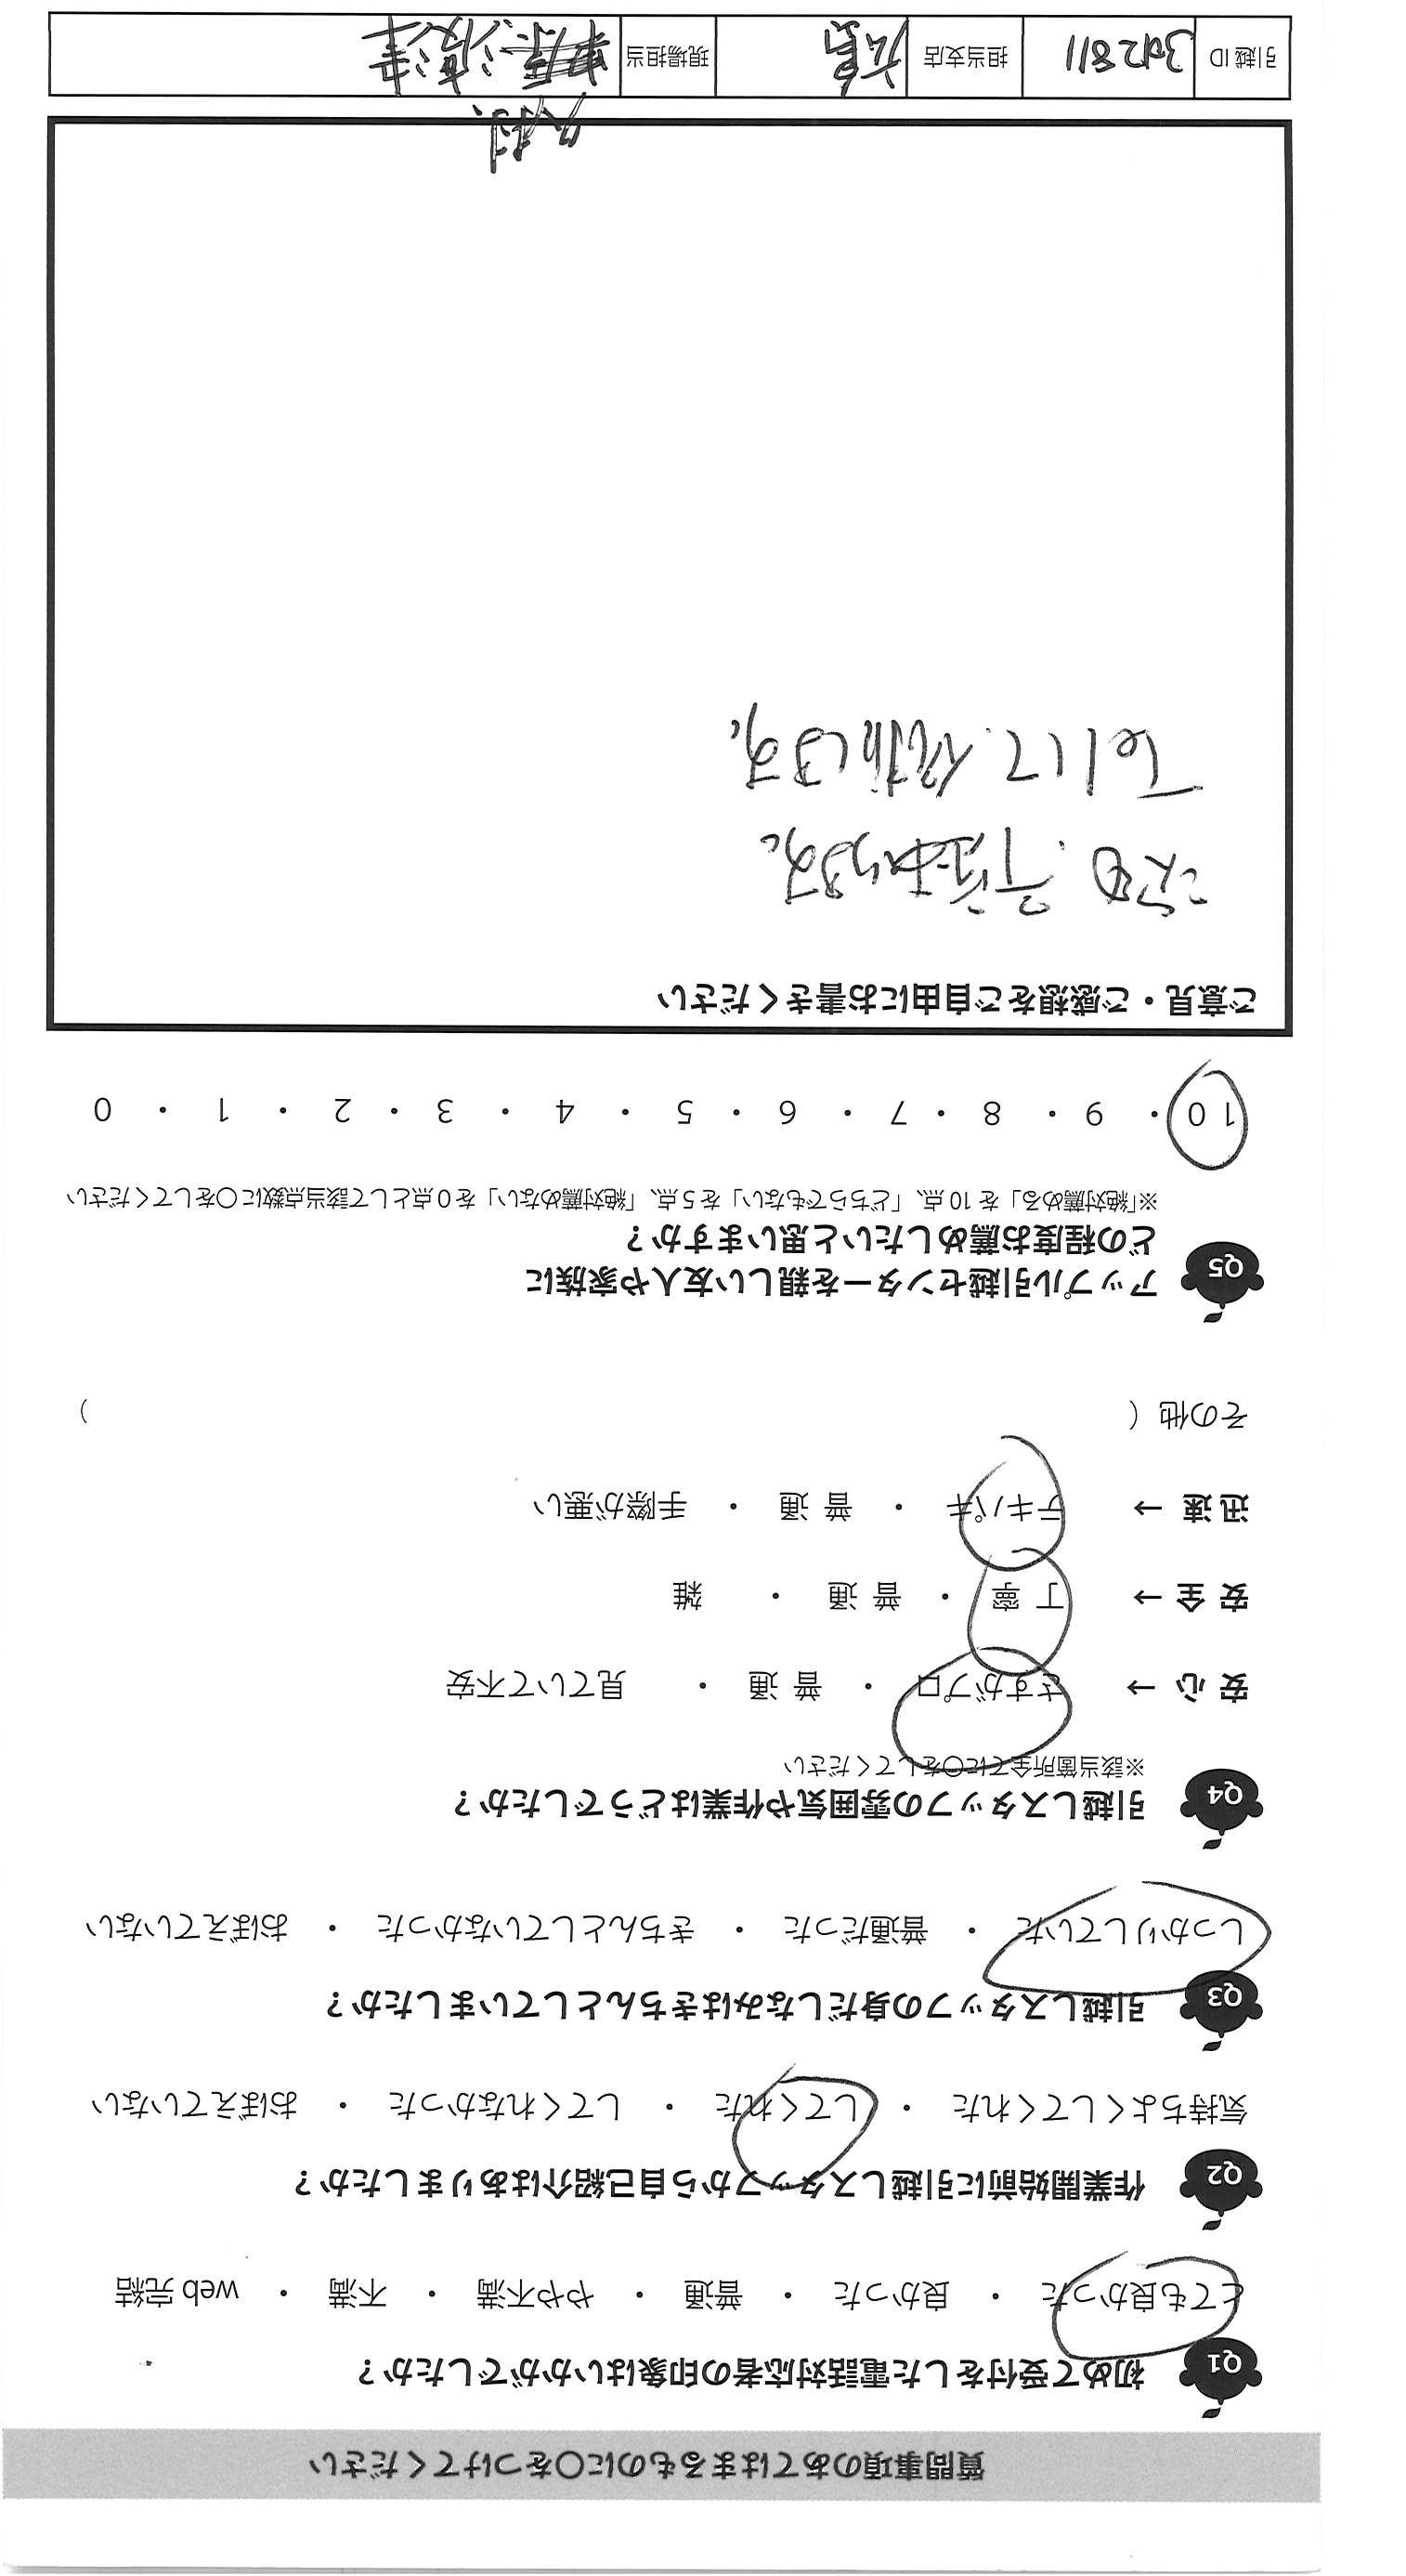 質問事項のあてはまるものに〇をつけてください
Q1 初めて受付をした電話対応者の印象はいかがでしたか？
とても良かった ・ 良かった ・ 普通 ・ やや不満 ・ 不満 ・ web 完結
Q2 作業開始前に引越しスタッフから自己紹介はありましたか？
気持ちよくしてくれた ・ してくれた ・ してくれなかった ・ おぼえていない
Q3 引越しスタッフの身だしなみはきちんとしていましたか？
しっかりしていた ・ 普通だった ・ きちんとしていなかった ・ おぼえていない
Q4 引越しスタッフの雰囲気や作業はどうでしたか？
※該当箇所全てに〇をしてください
安 心 → さすがプロ ・ 普 通 ・ 見ていて不安
安 全 → 丁 寧 ・ 普 通 ・ 雑
迅 速 → テキパキ ・ 普 通 ・ 手際が悪い
その他（ ）
Q5 アップル引越センターを親しい友人や家族に
どの程度お薦めしたいと思いますか？
※「絶対薦める」を 10 点、「どちらでもない」を 5 点、「絶対薦めない」を 0 点として該当点数に〇をしてください
1 0 ・ 9 ・ 8 ・ 7 ・ 6 ・ 5 ・ 4 ・ 3 ・ 2 ・ 1 ・ 0
ご意見・ご感想をご自由にお書きください
次回
Telして 依頼します。
引越 ID 3012811 担当支店 広島 現場担当